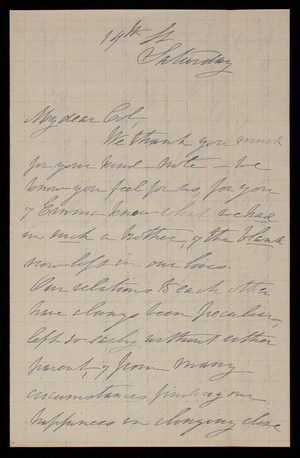 19th St
Saturday
My dear Col,
We thank you much
for your kind note - we
know you feel for us, for you
& Emma know what we had
in such a Mother, & the blank
now left in our lives.
Our relations to each other
have always been peculiar,
left so early without either
parent, & from many
circumstances finding our
happiness in clinging close